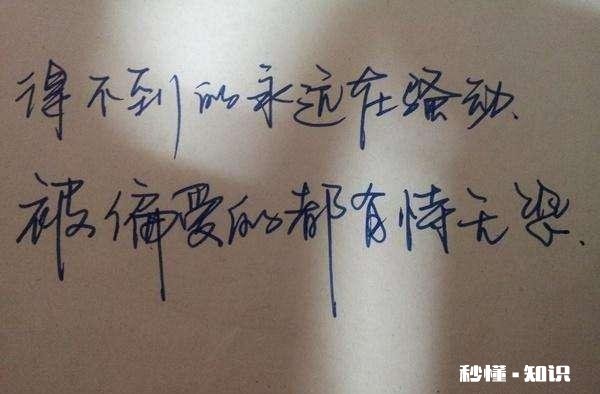 得不到的永远在骚动、
被偏爱的都有恃无恐.
秒懂·知识